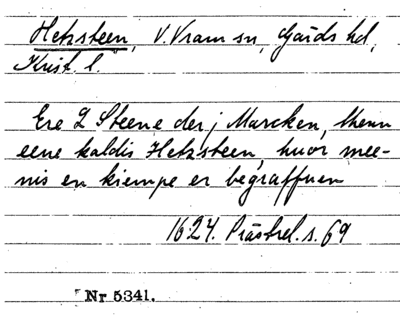 Hetzsteen, V. Vram sn, Gärds hd,
Krist. l.
Ere 2 Steene der j Marcken, thenn
eene kaldis Hetzsteen, huor mee-
nis en kiempe er begraffuen
1624. Prästrel. s. 69
Nr 5341.